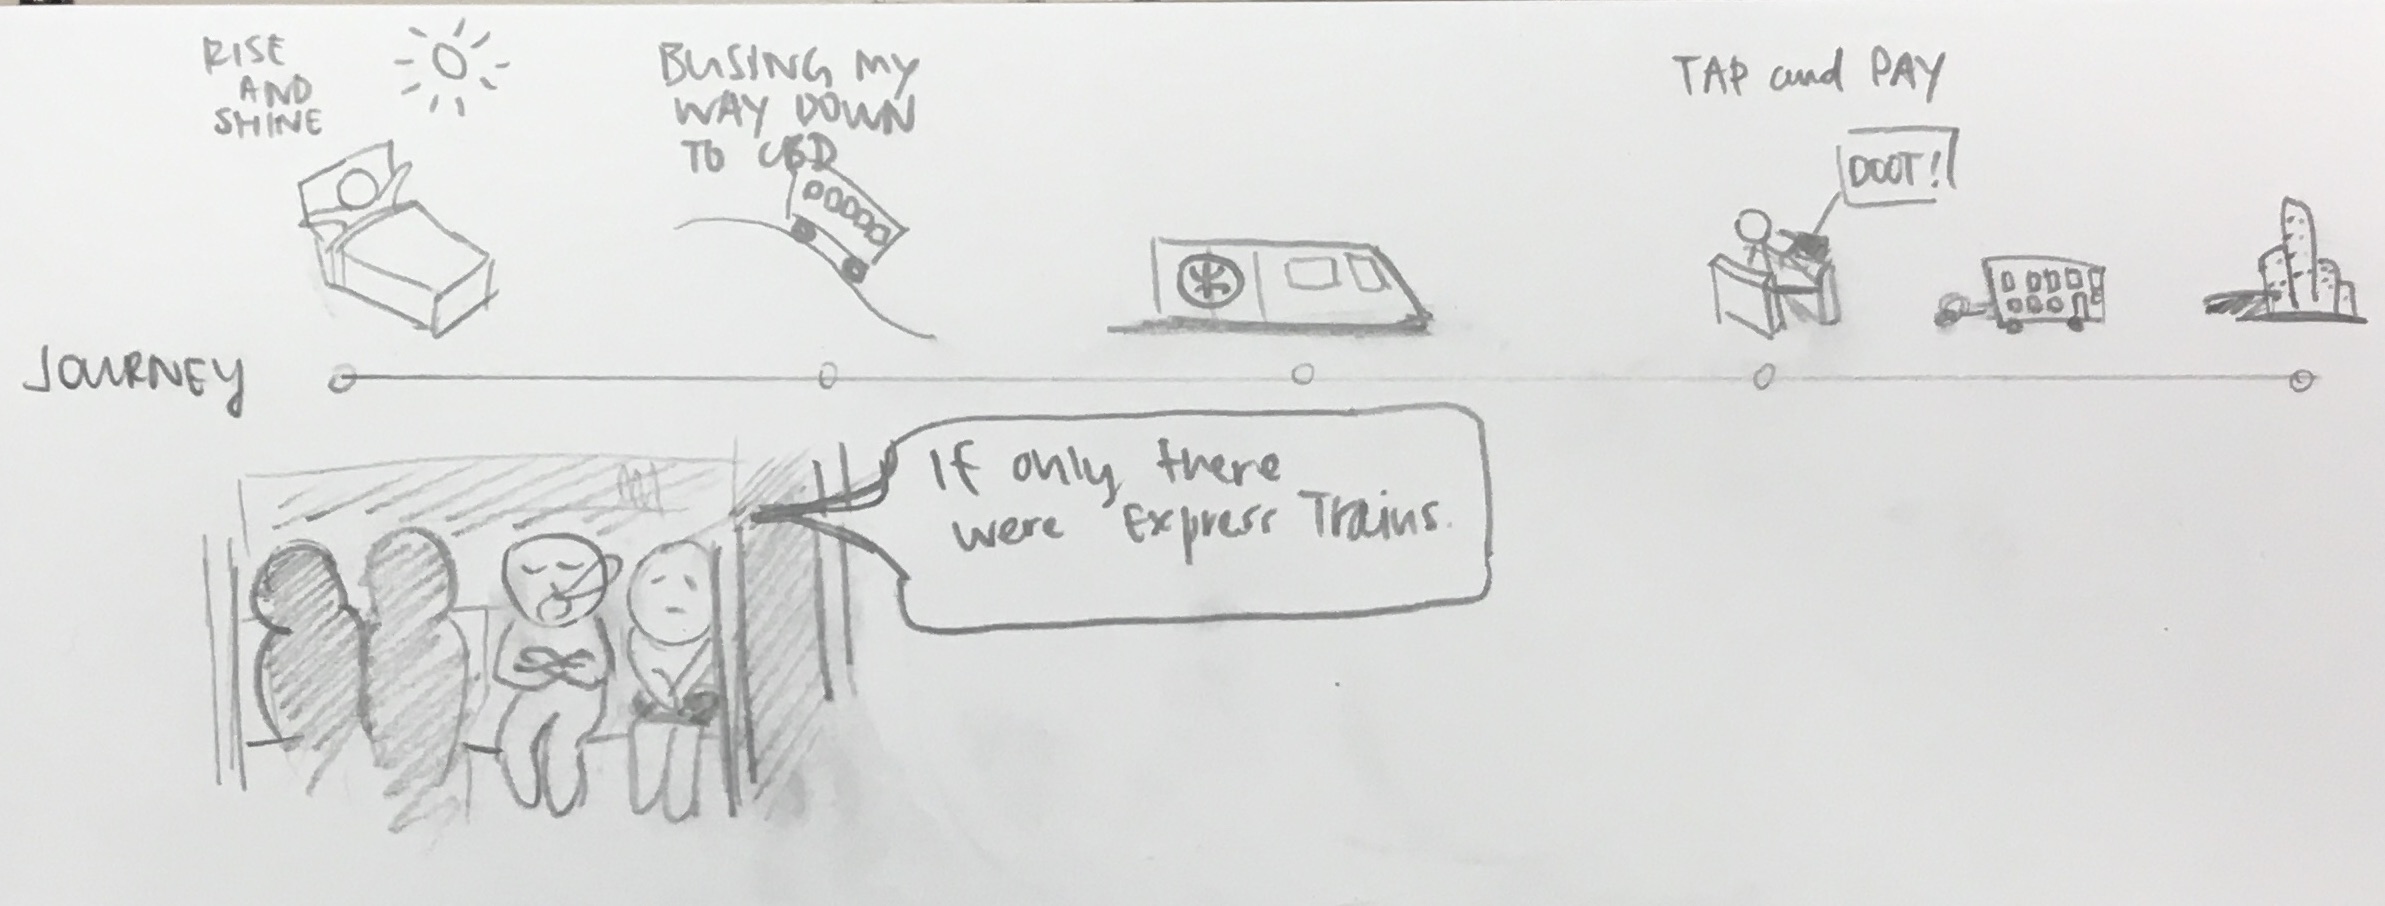 RISE
AND
SHINE
BUSING MY
WAY DOWN
TO CBD
TAP and PAY
DOOT!
JOURNEY
If only there
were Express Trains.